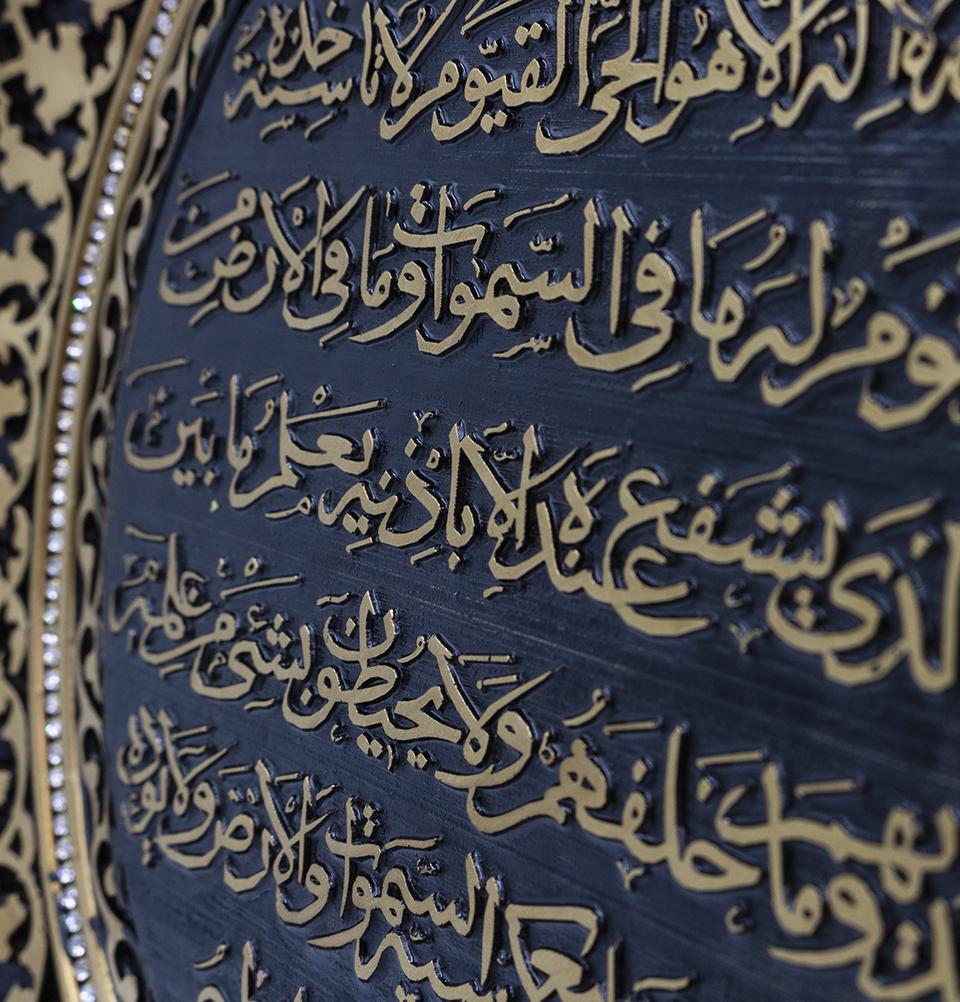 لَا اِلٰهَ اِلَّا هُوَ الْحَىُّ الْقَيُّومُ لَا تَاْخُذُهُ سِنَةٌ
نَوْمٌ لَهُ مَا فِى السَّمٰوَاتِ وَمَا فِى الْاَرْضِ مَنْ
الَّذِى يَشْفَعُ عِنْدَهُ اِلَّا بِاِذْنِهِ يَعْلَمُ مَا بَيْنَ
اَيْدِيهِمْ وَمَا خَلْفَهُمْ وَلَا يُحِيطُونَ بِشَىْءٍ مِنْ عِلْمِهِ
كُرْسِيُّهُ السَّمٰوَاتِ وَالْاَرْضَ وَلَا يَؤُدُهُ